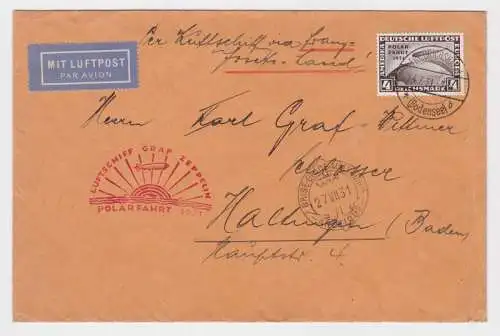 MIT LUFTPOST
PAR AVION
Per Luftschiff via Franz-
Josefs-Land!
DEUTSCHE LUFTPOST
POLAR-
FAHRT
1931
AMERIKA
EUROPA
4 REICHSMARK 4
(Bodensee)
Herrn Karl Graf-Wittmer
Schlosser
Haltingen (Baden)
Hauptstr. 4
LUFTSCHIFF GRAF ZEPPELIN
POLARFAHRT 1931
27 VII 31